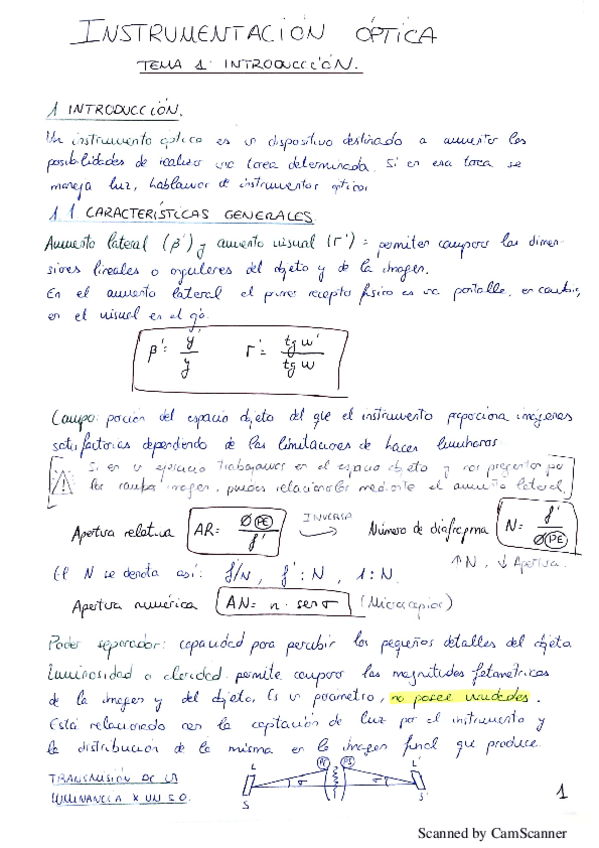 INSTRUMENTACIÓN ÓPTICA
TEMA 1: INTRODUCCIÓN.
1 INTRODUCCIÓN.
Un instrumento óptico es un dispositivo destinado a aumentar las
posibilidades de realizar una tarea determinada. Si en esa tarea se
maneja luz, hablamos de instrumentos ópticos
1.1 CARACTERÍSTICAS GENERALES
Aumento lateral (β') y aumento visual (Γ') = permiten comparar las dimen-
siones lineales o angulares del objeto y de la imagen.
En el aumento lateral el primer receptor físico es una pantalla, en cambio,
en el visual es el ojo.
β' = y'/y Γ' = tg w'/tg w
Campo: porción del espacio objeto del que el instrumento proporciona imágenes
satisfactorias dependiendo de las limitaciones de haces luminosos
Si en un ejercicio trabajamos en el espacio objeto y nos preguntan por
los campos imagen, puedes relacionarlos mediante el aumento lateral
Apertura relativa AR = ØPE/f' INVERSA → Número de diafragma N = f'/ØPE
↑N, ↓Apertura.
El N se denota así: f/N, f':N, 1:N.
Apertura numérica AN = n · sen σ (Microscopios)
Poder separador: capacidad para percibir los pequeños detalles del objeto
Luminosidad o claridad: permite comparar las magnitudes fotométricas
de la imagen y del objeto. Es un parámetro, no posee unidades.
Está relacionado con la captación de luz por el instrumento y
la distribución de la misma en la imagen final que produce.
TRANSMISIÓN DE LA
LUMINANCIA X UN S.O.
L PE PS L'
σ σ'
S S'
1
Scanned by CamScanner